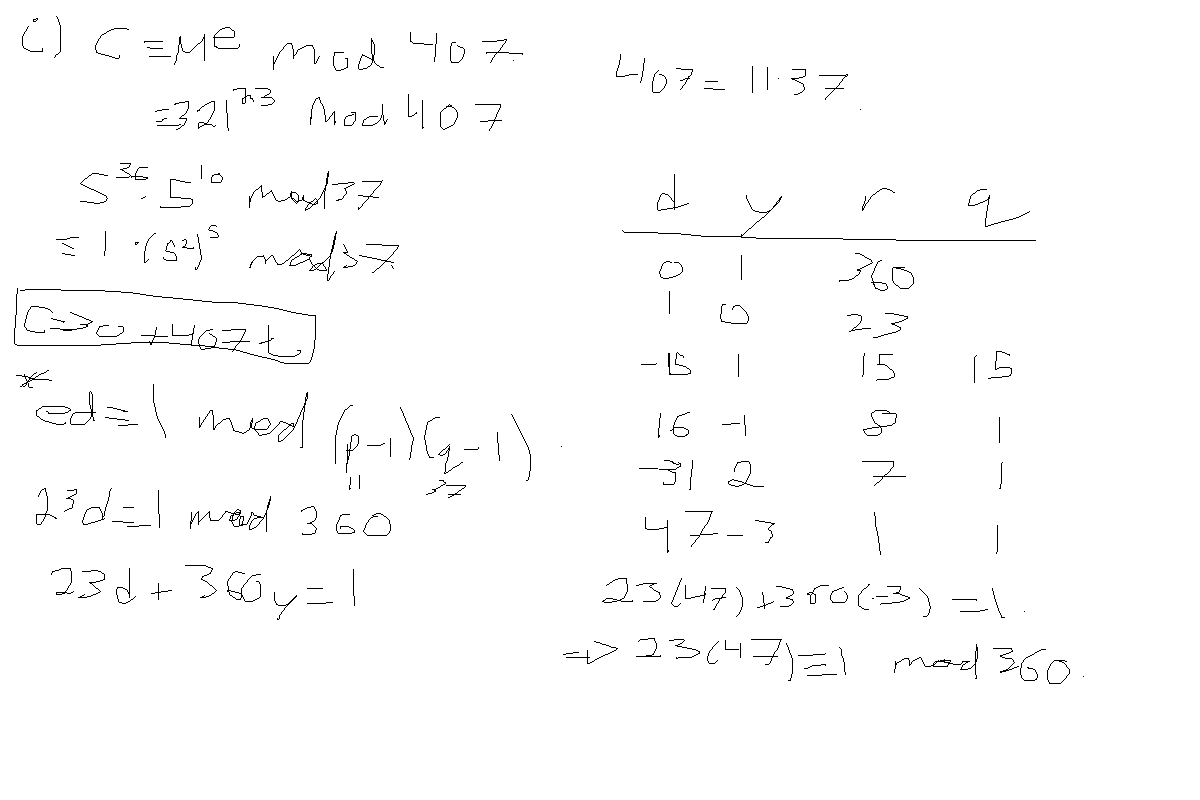 i) C ≡ M^e mod 407.
≡ 321^23 mod 407
5^36 · 5^10 mod 37
≡ 1 · (5^2)^5 mod 37.
C ≡ 30 + 407t
* ed ≡ 1 mod (p-1)(q-1).
11 37
23d ≡ 1 mod 360
23d + 360y = 1
407 = 11·37.
d y r q
0 1 360
1 0 23
-15 1 15 15
16 -1 8 1
-31 2 7 1
47 -3 1 1
23(47) + 360(-3) = 1.
⇒ 23(47) ≡ 1 mod 360.